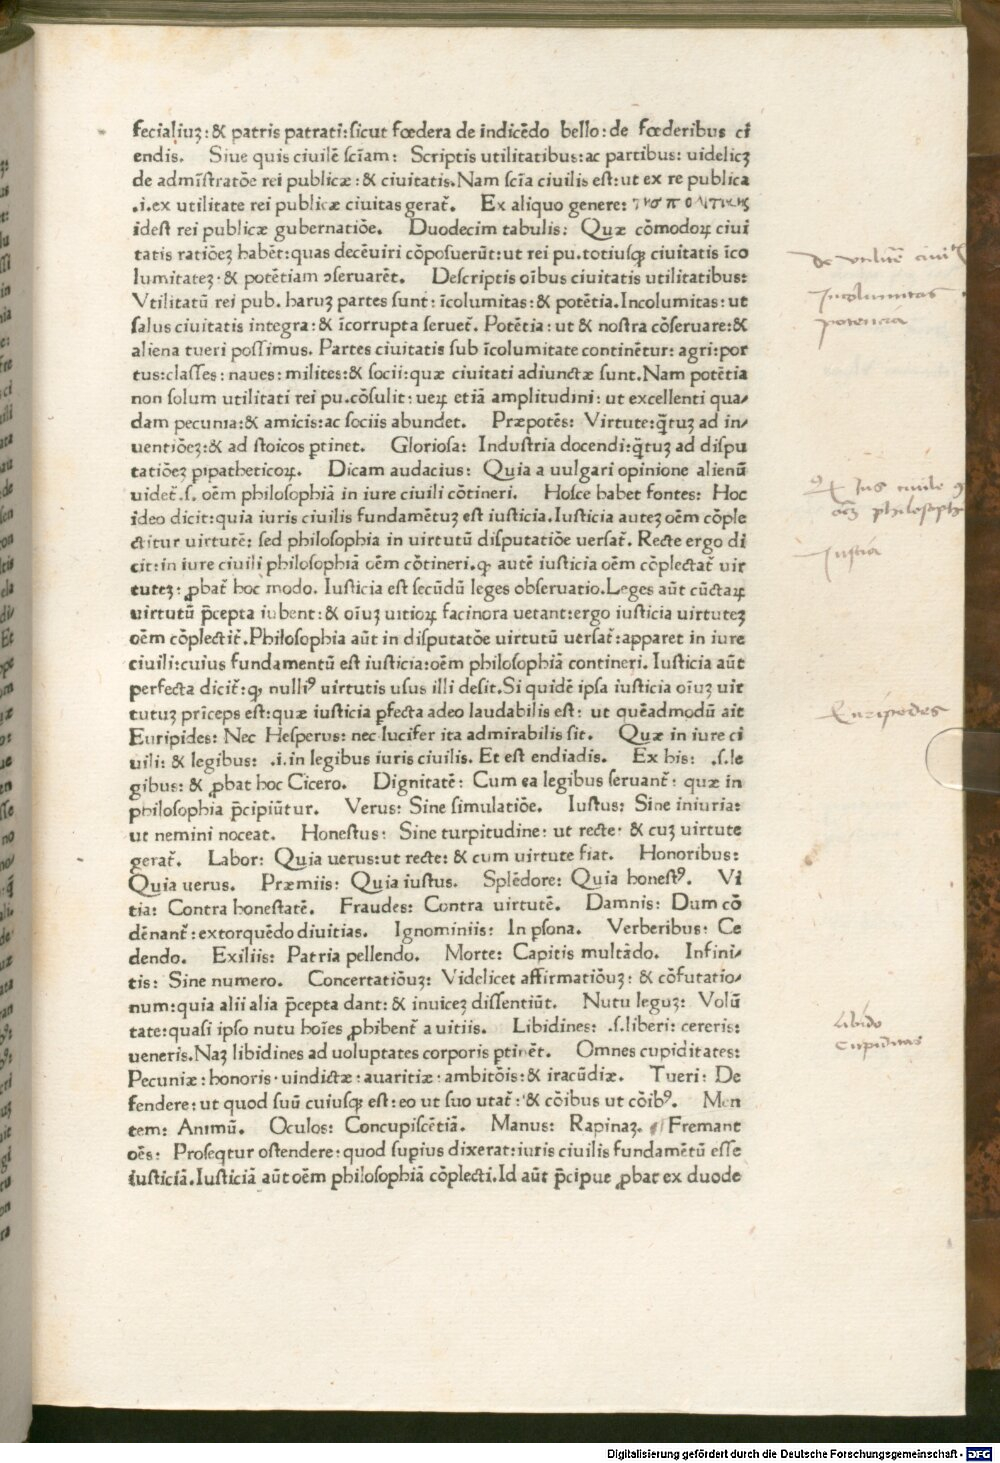 fecialiuʒ: & patris patrati: sicut fœdera de indicēdo bello: de fœderibus ci
endis. Siue quis ciuilē scīam: Scriptis utilitatibus: ac partibus: uidelicʒ
de admīstratōe rei publicæ: & ciuitatis. Nam scīa ciuilis est: ut ex re publica
.i. ex utilitate rei publicæ ciuitas gerat̄. Ex aliquo genere:
idest rei publicæ gubernatiōe. Duodecim tabulis: Quæ cōmodoꝝ ciui
tatis ratiōeʒ habēt: quas decēuiri cōposuerūt: ut rei pu. totiusqꝫ ciuitatis īco
lumitateʒ · & potētiam ɔseruarēt. Descriptis oībus ciuitatis utilitatibus:
Vtilitatū rei pub. haruʒ partes sunt: īcolumitas: & potētia. Incolumitas: ut
salus ciuitatis integra: & īcorrupta seruet̄. Potētia: ut & nostra cōseruare: &
aliena tueri possimus. Partes ciuitatis sub īcolumitate continētur: agri: por
tus: classes: naues: milites: & socii: quæ ciuitati adiunctæ sunt. Nam potētia
non solum utilitati rei pu. cōsulit: ueꝝ etiā amplitudini: ut excellenti qua/
dam pecunia: & amicis: ac sociis abundet. Præpotēs: Virtute: q̄tuʒ ad in/
uentiōeʒ: & ad stoicos ꝑtinet. Gloriosa: Industria docendi: q̄tuʒ ad dispu
tatiōeʒ pipatheticoꝝ. Dicam audacius: Quia a uulgari opinione alienū
uidet̄. s. oēm philosophiā in iure ciuili cōtineri. Hosce habet fontes: Hoc
ideo dicit: quia iuris ciuilis fundamētuʒ est iusticia. Iusticia auteʒ oēm cōple
ctitur uirtutē: sed philosophia in uirtutū disputatiōe uersat̄. Recte ergo di
cit: in iure ciuili philosophiā oēm cōtineri. ꝙ autē iusticia oēm cōplectat̄ uir
tuteʒ: ꝓbat̄ hoc modo. Iusticia est secūdū leges obseruatio. Leges aūt cūctaꝝ
uirtutū p̄cepta iubent: & oīuʒ uitioꝝ facinora uetant: ergo iusticia uirtuteʒ
oēm cōplectit̄. Philosophia aūt in disputatōe uirtutū uersat̄: apparet in iure
ciuili: cuius fundamentū est iusticia: oēm philosophiā contineri. Iusticia aūt
perfecta dicit̄: ꝙ nulliꝰ uirtutis usus illi desit. Si quidē ipsa iusticia oīuʒ uir
tutuʒ prīceps est: quæ iusticia ꝑfecta adeo laudabilis est: ut quēadmodū ait
Euripides: Nec Hesperus: nec lucifer ita admirabilis sit. Quæ in iure ci
uili: & legibus: .i. in legibus iuris ciuilis. Et est endiadis. Ex his: .s. le
gibus: & ꝓbat hoc Cicero. Dignitatē: Cum ea legibus seruant̄: quæ in
philosophia p̄cipiūtur. Verus: Sine simulatiōe. Iustus: Sine iniuria:
ut nemini noceat. Honestus: Sine turpitudine: ut recte: & cuʒ uirtute
gerat̄. Labor: Quia uerus: ut recte: & cum uirtute fiat. Honoribus:
Quia uerus. Præmiis: Quia iustus. Splēdore: Quia honestꝰ. Vi
tia: Contra honestatē. Fraudes: Contra uirtutē. Damnis: Dum cō
dēnant̄: extorquēdo diuitias. Ignominiis: In ꝑsona. Verberibus: Ce
dendo. Exiliis: Patria pellendo. Morte: Capitis multādo. Infini/
tis: Sine numero. Concertatiōuʒ: Videlicet affirmatiōuʒ: & cōfutatio/
num: quia alii alia p̄cepta dant: & inuiceʒ dissentiūt. Nutu leguʒ: Volū
tate: quasi ipso nutu hoīes ꝓhibent̄ a uitiis. Libidines: .s. liberi: cereris:
ueneris. Naʒ libidines ad uoluptates corporis ꝑtinēt. Omnes cupiditates:
Pecuniæ: honoris · uindictæ: auaritiæ · ambitōis: & iracūdiæ. Tueri: De
fendere: ut quod suū cuiusqꝫ est: eo ut suo utat̄: & cōibus ut cōibꝰ. Men
tem: Animū. Oculos: Concupiscētiā. Manus: Rapinaʒ. Fremant
oēs: Proseqtur ostendere: quod suꝑius dixerat: iuris ciuilis fundamētū esse
iusticiā. Iusticiā aūt oēm philosophiā cōplecti. Id aūt p̄cipue ꝓbat ex duode
Incolumitas
potencia
Ius ciuile
Iusticia
Euripedes
Libido
Cupiditas
Digitalisierung gefördert durch die Deutsche Forschungsgemeinschaft - DFG